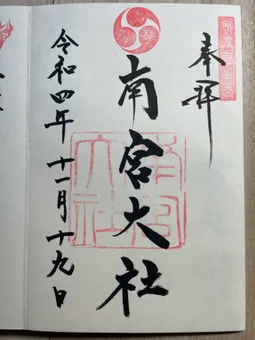 奉拝
南宮大社
令和四年十一月十九日
南宮大社